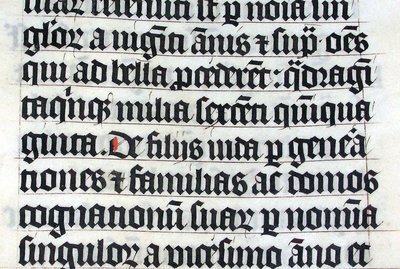 suaꝝ recensiti sūt ꝑ noīa sin
guloꝝ a uigīti ānis ⁊ sup̄ oēs
qui ad bella ꝓcederēt: q̄dragī
taq̄nq̄ milia sexcēti quīqua
ginta. De filijs iuda ꝑ gene͛a
tiones ⁊ familias ac domos
cognationū suaꝝ ꝑ nomīa
singuloꝝ a vicesimo āno et